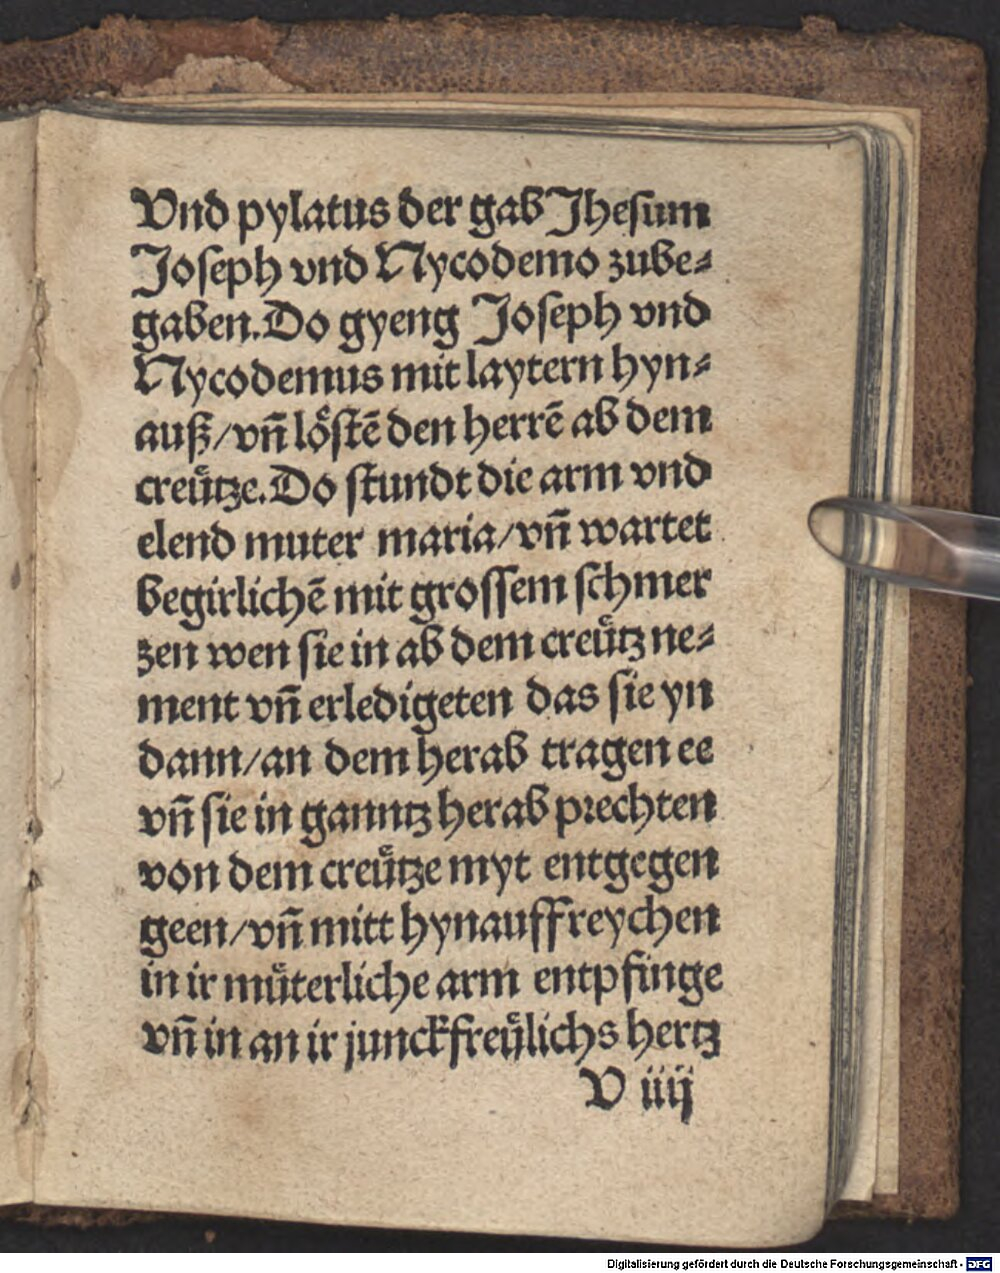 Vnd pylatus der gab Jhesum
Joseph vnd Nycodemo zube⸗
gaben. Do gyeng Joseph vnd
Nycodemus mit laytern hyn⸗
auß/vn̄ loͤſtē den herrē ab dem
creuͤtze. Do ſtundt die arm vnd
elend muter maria/vn̄ wartet
begirlichē mit groſſem ſchmer
zen wen ſie in ab dem creuͤtz ne⸗
ment vn̄ erledigeten das ſie yn
dann/an dem herab tragen ee
vn̄ ſie in ganntz herab prechten
von dem creuͤtze myt entgegen
geen/vn̄ mitt hynauffreychen
in ir muͤterliche arm entpfinge
vn̄ in an ir junckfreuͤlichs hertz
V iiij
Digitalisierung gefördert durch die Deutsche Forschungsgemeinschaft - DFG